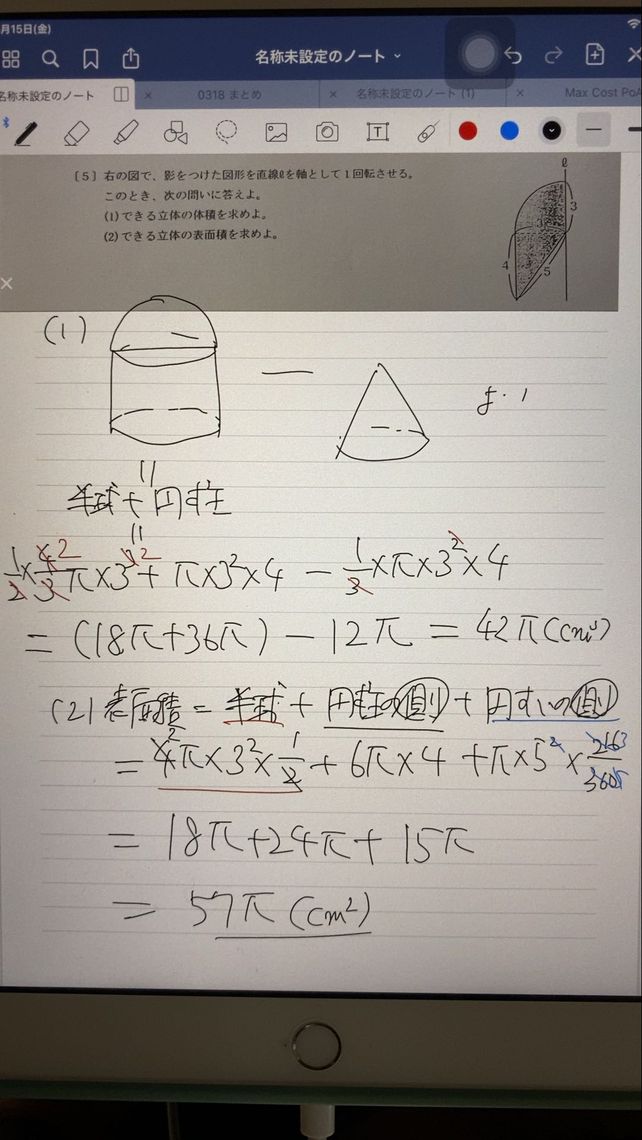 月15日(金)
名称未設定のノート
名称未設定のノート × 0318 まとめ × 名称未設定のノート (1) × Max Cost PoA
〔5〕右の図で、影をつけた図形を直線ℓを軸として1回転させる。
このとき、次の問いに答えよ。
(1)できる立体の体積を求めよ。
(2)できる立体の表面積を求めよ。
ℓ
3
3
4
5
(1) —
半球+円柱
1/2×4/3π×3³+π×3²×4－1/3×π×3²×4
=(18π+36π)－12π=42π(cm³)
(2)表面積=半球+円柱の側+円すいの側
=4π×3²×1/2+6π×4+π×5²×216/360
=18π+24π+15π
=57π(cm²)